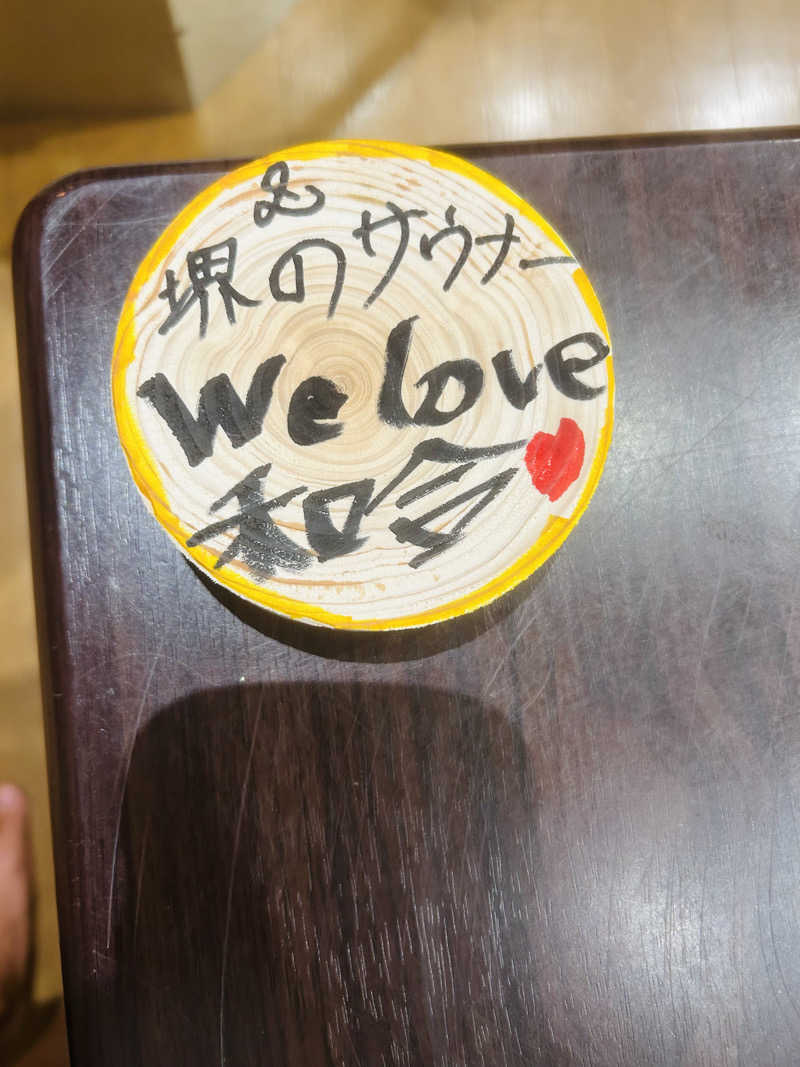 堺のサウナー
We love
和合